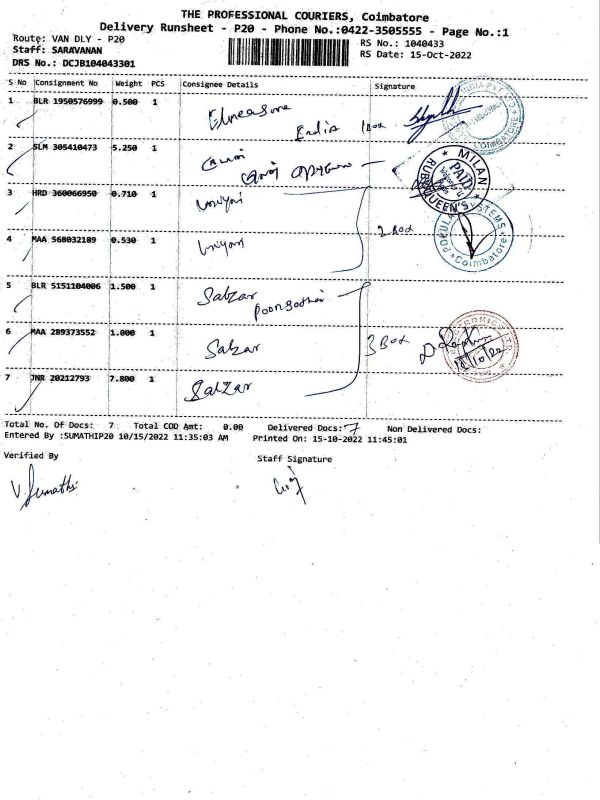 THE PROFESSIONAL COURIERS, Coimbatore
Delivery Runsheet - P20 - Phone No.:0422-3505555 - Page No.:1
Route: VAN DLY - P20
RS No.: 1040433
Staff: SARAVANAN
RS Date: 15-Oct-2022
DRS No.: DCJB104043301
S No Consignment No Weight PCS Consignee Details Signature
1 BLR 1950576999 0.500 1
India 1 Box
2 SLM 305410473 5.250 1
MILAN
PAID
RUBY QUEEN'S
3 HRD 360066950 0.710 1 Uniyani
4 MAA 568032189 0.530 1 Uniyani 2 Box
POPULAR SYSTEMS
Coimbatore
5 BLR 5151104006 1.500 1 Salzar
6 MAA 289373552 1.000 1 Salzar 3 Box
15/10/22
7 JNR 20212793 7.800 1 Salzar
Total No. Of Docs: 7 Total COD Amt: 0.00 Delivered Docs: 7 Non Delivered Docs:
Entered By :SUMATHIP20 10/15/2022 11:35:03 AM Printed On: 15-10-2022 11:45:01
Verified By
Staff Signature
V. Sumathi